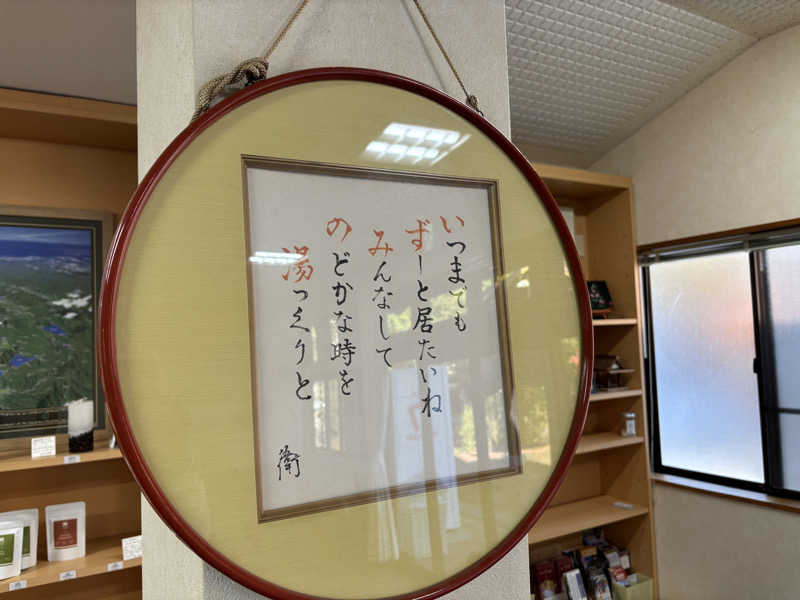 いつまでも
ずーと居たいね
みんなして
のどかな時を
湯っくりと
衛